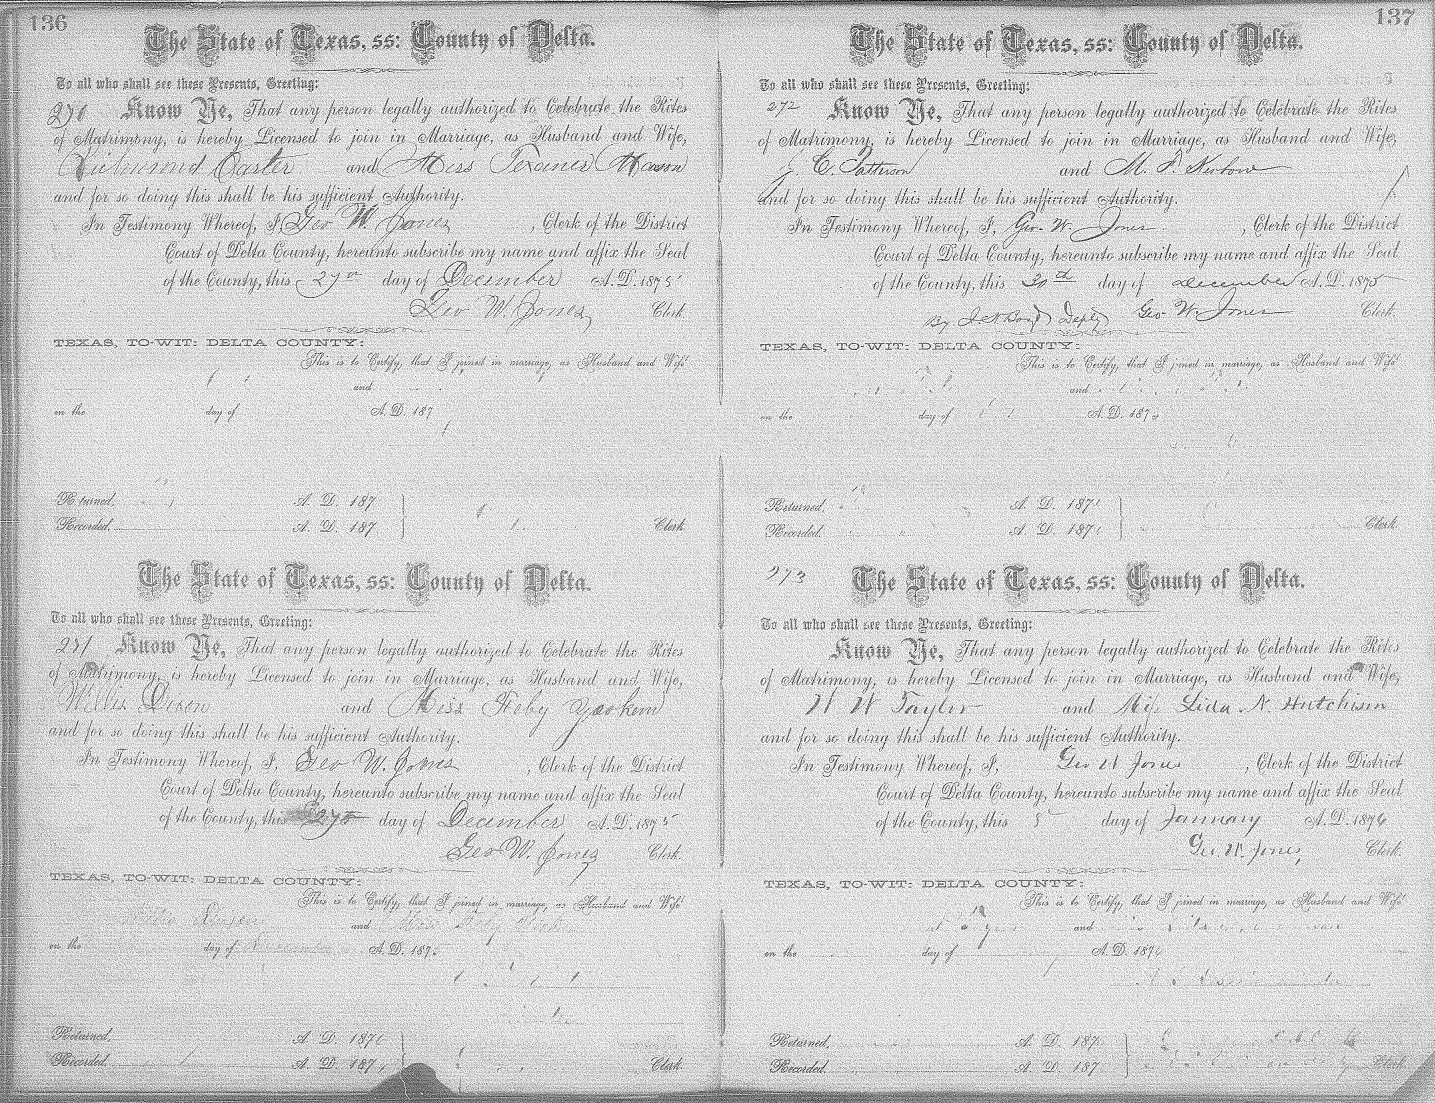 136
The State of Texas, ss: County of Delta.
To all who shall see these Presents, Greeting:
270 Know Ye, That any person legally authorized to Celebrate the Rites
of Matrimony, is hereby Licensed to join in Marriage, as Husband and Wife,
Carter and Miss Mason
and for so doing this shall be his sufficient Authority.
In Testimony Whereof, I, Geo W. Jones, Clerk of the District
Court of Delta County, hereunto subscribe my name and affix the Seal
of the County, this 27th day of December A.D. 1875
Geo W. Jones, Clerk.
TEXAS, TO-WIT: DELTA COUNTY:
This is to Certify, that I joined in marriage, as Husband and Wife
and
on the day of A.D. 187
Returned, A. D. 187
Recorded, A. D. 187 Clerk
The State of Texas, ss: County of Delta.
To all who shall see these Presents, Greeting:
271 Know Ye, That any person legally authorized to Celebrate the Rites
of Matrimony, is hereby Licensed to join in Marriage, as Husband and Wife,
Willis Dixon and Miss Feby Yoakem
and for so doing this shall be his sufficient Authority.
In Testimony Whereof, I, Geo W. Jones, Clerk of the District
Court of Delta County, hereunto subscribe my name and affix the Seal
of the County, this 27th day of December A.D. 1875
Geo W. Jones, Clerk.
TEXAS, TO-WIT: DELTA COUNTY:
This is to Certify, that I joined in marriage, as Husband and Wife
and Miss
on the day of December A.D. 187
Returned, A. D. 187
Recorded, A. D. 187 Clerk.
137
The State of Texas, ss: County of Delta.
To all who shall see these Presents, Greeting:
272 Know Ye, That any person legally authorized to Celebrate the Rites
of Matrimony, is hereby Licensed to join in Marriage, as Husband and Wife,
J. C. Patterson and M. F.
and for so doing this shall be his sufficient Authority.
In Testimony Whereof, I, Geo. W. Jones, Clerk of the District
Court of Delta County, hereunto subscribe my name and affix the Seal
of the County, this 30th day of December A.D. 1875
By Boyd Depty Geo W. Jones Clerk.
TEXAS, TO-WIT: DELTA COUNTY:
This is to Certify, that I joined in marriage, as Husband and Wife
and
on the day of A.D. 187
Returned, A. D. 187
Recorded, A. D. 187 Clerk.
273 The State of Texas, ss: County of Delta.
To all who shall see these Presents, Greeting:
Know Ye, That any person legally authorized to Celebrate the Rites
of Matrimony, is hereby Licensed to join in Marriage, as Husband and Wife,
W W Taylor and Miss Lida N. Hutchison
and for so doing this shall be his sufficient Authority.
In Testimony Whereof, I, Geo W Jones, Clerk of the District
Court of Delta County, hereunto subscribe my name and affix the Seal
of the County, this 5 day of January A.D. 1876
Geo. W. Jones, Clerk.
TEXAS, TO-WIT: DELTA COUNTY:
This is to Certify, that I joined in marriage, as Husband and Wife
and
on the day of A.D. 187
Returned, A. D. 187
Recorded, A. D. 187 Clerk.